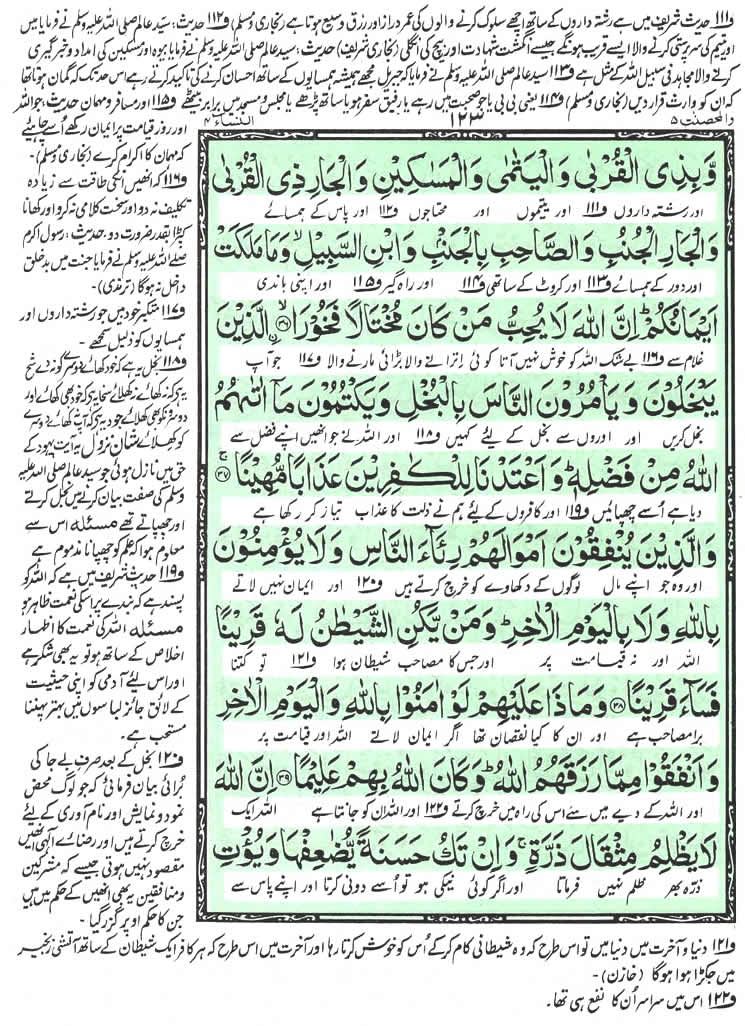 و۱۱۱ حدیث شریف میں ہے رشتہ داروں کے ساتھ اچھے سلوک کرنے والوں کی عمر دراز اور رزق وسیع ہوتا ہے (بخاری ومسلم) و۱۱۲ حدیث: سید عالم صلی اللہ علیہ وسلم نے فرمایا میں
اور یتیم کی سرپرستی کرنے والا ایسے قریب ہونگے جیسے انگشت شہادت اور بیچ کی انگلی (بخاری شریف) حدیث: سید عالم صلی اللہ علیہ وسلم نے فرمایا بیوہ اور مسکین کی امداد و خبرگیری
کرنے والا مجاہد فی سبیل اللہ کے مثل ہے و۱۱۳ سید عالم صلی اللہ علیہ وسلم نے فرمایا کہ جبریل مجھے ہمیشہ ہمسایوں کے ساتھ احسان کرنے کی تاکید کرتے رہے اس حد تک کہ گمان ہوتا تھا
کہ ان کو وارث قرار دیں (بخاری ومسلم) و۱۱۴ یعنی بی بی یا جو صحبت میں رہے یا رفیق سفر ہو یا ساتھ پڑھے یا مجلس و مسجد میں برابر بیٹھے و۱۱۵ اور مسافر و مہمان حدیث: جو اللہ
والمحصنت ۵ ۱۲۳ النساء ۴
اور روز قیامت پر ایمان رکھے اُسے چاہیئے
کہ مہمان کا اکرام کرے (بخاری ومسلم)-
و۱۱۶ کہ انھیں انکی طاقت سے زیادہ
تکلیف نہ دو اور سخت کلامی نہ کرو اور کھانا
کپڑا بقدر ضرورت دو حدیث: رسول اکرم
صلے اللہ علیہ وسلم نے فرمایا جنت میں بدخلق
داخل نہ ہوگا (ترمذی)-
و۱۱۷ متکبر خود بیں جو رشتہ داروں اور
ہمسایوں کو ذلیل سمجھے-
و۱۱۸ بخل یہ ہے کہ خود کھائے دوسرے کو نہ دے شح
یہ کہ نہ کھائے نہ کھلائے سخا یہ کہ خود بھی کھائے اور
دوسرونکو بھی کھلائے جود یہ کہ آپ نہ کھائے دوسرے
کو کھلائے شان نزول یہ آیت یہود کے
حق میں نازل ہوئی جو سید عالم صلی اللہ علیہ
وسلم کی صفت بیان کرنے میں بخل کرتے
اور چھپاتے تھے مسئلہ اس سے
معلوم ہوا کہ علم کو چھپانا مذموم ہے
و۱۱۹ حدیث شریف میں ہے کہ اللہ کو
پسند ہے کہ بندے پر اسکی نعمت ظاہر ہو
مسئلہ اللہ کی نعمت کا اظہار
اخلاص کے ساتھ ہو تو یہ بھی شکر ہے
اور اس لیئے آدمی کو اپنی حیثیت
کے لائق جائز لباسوں میں بہتر پہننا
مستحب ہے-
و۱۲۰ بخل کے بعد صرف بے جا کی
برائی بیان فرمائی کہ جو لوگ محض
نمود و نمایش اور نام آوری کے لیئے
خرچ کرتے ہیں اور رضائے الٰہی انھیں
مقصود نہیں ہوتی جیسے کہ مشرکین
و منافقین یہ بھی انھیں کے حکم میں ہیں
جن کا حکم اوپر گزر گیا-
وَّبِذِی الْقُرْبٰی وَالْیَتٰمٰی وَالْمَسٰكِیْنِ وَالْجَارِ ذِی الْقُرْبٰی
اور رشتہ داروں و۱۱۱ اور یتیموں اور محتاجوں و۱۱۲ اور پاس کے ہمسائے
وَالْجَارِ الْجُنُبِ وَالصَّاحِبِ بِالْجَنْۢبِ وَابْنِ السَّبِیْلِۙ وَمَا مَلَكَتْ
اور دور کے ہمسائے و۱۱۳ اور کروٹ کے ساتھی و۱۱۴ اور راہ گیر و۱۱۵ اور اپنی باندی
اَیْمَانُكُمْؕ اِنَّ اللّٰهَ لَا یُحِبُّ مَنْ كَانَ مُخْتَالًا فَخُوْرَاۙ ۝۳۶ الَّذِیْنَ
غلام سے و۱۱۶ بے شک اللہ کو خوش نہیں آتا کوئی اترانے والا بڑائی مارنے والا و۱۱۷ جو آپ
یَبْخَلُوْنَ وَیَاْمُرُوْنَ النَّاسَ بِالْبُخْلِ وَیَكْتُمُوْنَ مَاۤ اٰتٰىهُمُ
بخل کریں اور اوروں سے بخل کے لیئے کہیں و۱۱۸ اور اللہ نے جو انھیں اپنے فضل سے
اللّٰهُ مِنْ فَضْلِهٖؕ وَاَعْتَدْنَا لِلْكٰفِرِیْنَ عَذَابًا مُّهِیْنًاۚ ۝۳۷
دیا ہے اُسے چھپائیں و۱۱۹ اور کافروں کے لیئے ہم نے ذلت کا عذاب تیار کر رکھا ہے
وَالَّذِیْنَ یُنْفِقُوْنَ اَمْوَالَهُمْ رِئَآءَ النَّاسِ وَلَا یُؤْمِنُوْنَ
اور وہ جو اپنے مال لوگوں کے دکھاوے کو خرچ کرتے ہیں و۱۲۰ اور ایمان نہیں لاتے
بِاللّٰهِ وَلَا بِالْیَوْمِ الْاٰخِرِؕ وَمَنْ یَّكُنِ الشَّیْطٰنُ لَهٗ قَرِیْنًا
اللہ اور نہ قیامت پر اور جس کا مصاحب شیطان ہوا و۱۲۱ تو کتنا
فَسَآءَ قَرِیْنًا ۝۳۸ وَمَاذَا عَلَیْهِمْ لَوْ اٰمَنُوْا بِاللّٰهِ وَالْیَوْمِ الْاٰخِرِ
برا مصاحب ہے اور ان کا کیا نقصان تھا اگر ایمان لاتے اللہ اور قیامت پر
وَاَنْفَقُوْا مِمَّا رَزَقَهُمُ اللّٰهُؕ وَكَانَ اللّٰهُ بِهِمْ عَلِیْمًا ۝۳۹ اِنَّ اللّٰهَ
اور اللہ کے دیے میں سے اس کی راہ میں خرچ کرتے و۱۲۲ اور اللہ ان کو جانتا ہے اللہ ایک
لَا یَظْلِمُ مِثْقَالَ ذَرَّةٍۚ وَاِنْ تَكُ حَسَنَةً یُّضٰعِفْهَا وَیُؤْتِ
ذرہ بھر ظلم نہیں فرماتا اور اگر کوئی نیکی ہو تو اُسے دونی کرتا اور اپنے پاس سے
و۱۲۱ دنیا و آخرت میں دنیا میں تو اس طرح کہ وہ شیطانی کام کرکے اُس کو خوش کرتا رہا اور آخرت میں اس طرح کہ ہر کافر ایک شیطان کے ساتھ آتشی زنجیر
میں جکڑا ہوا ہوگا (خازن)-
و۱۲۲ اس میں سراسر اُن کا نفع ہی تھا۔